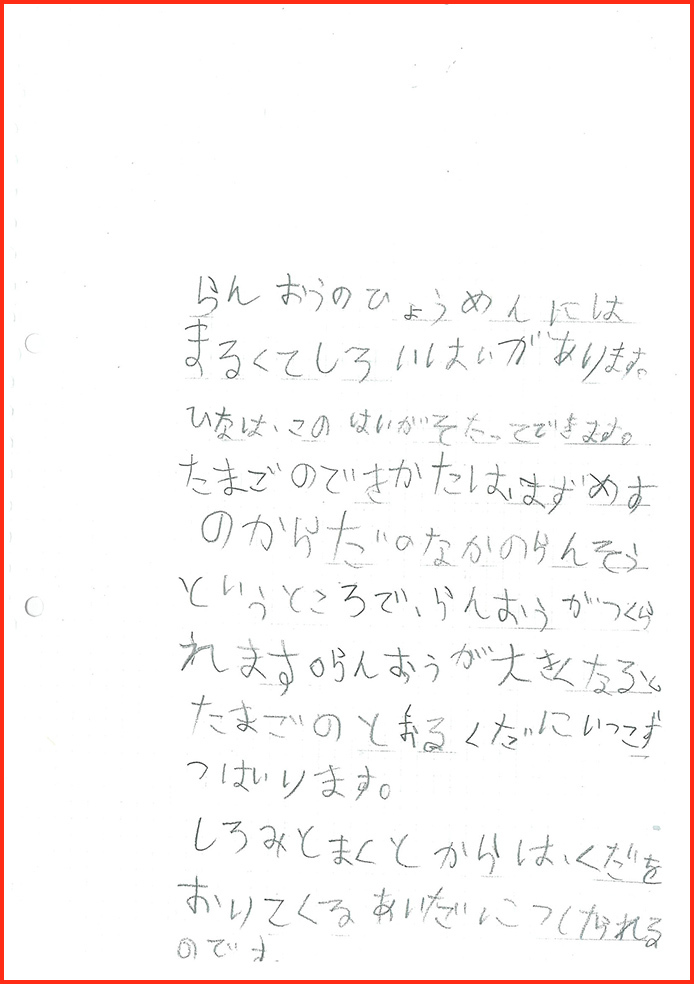 らんおうのひょうめんには
まるくてしろいはいがあります。
ひなは、このはいがそたってできます。
たまごのできかたは、まずめす
のからだのなかのらんそう
というところで、らんおうがつくら
れます。らんおうが大きくなると
たまごのとおるくだにいっこず
つはいります。
しろみとまくとからは、くだを
おりてくるあいだにつくられる
のです